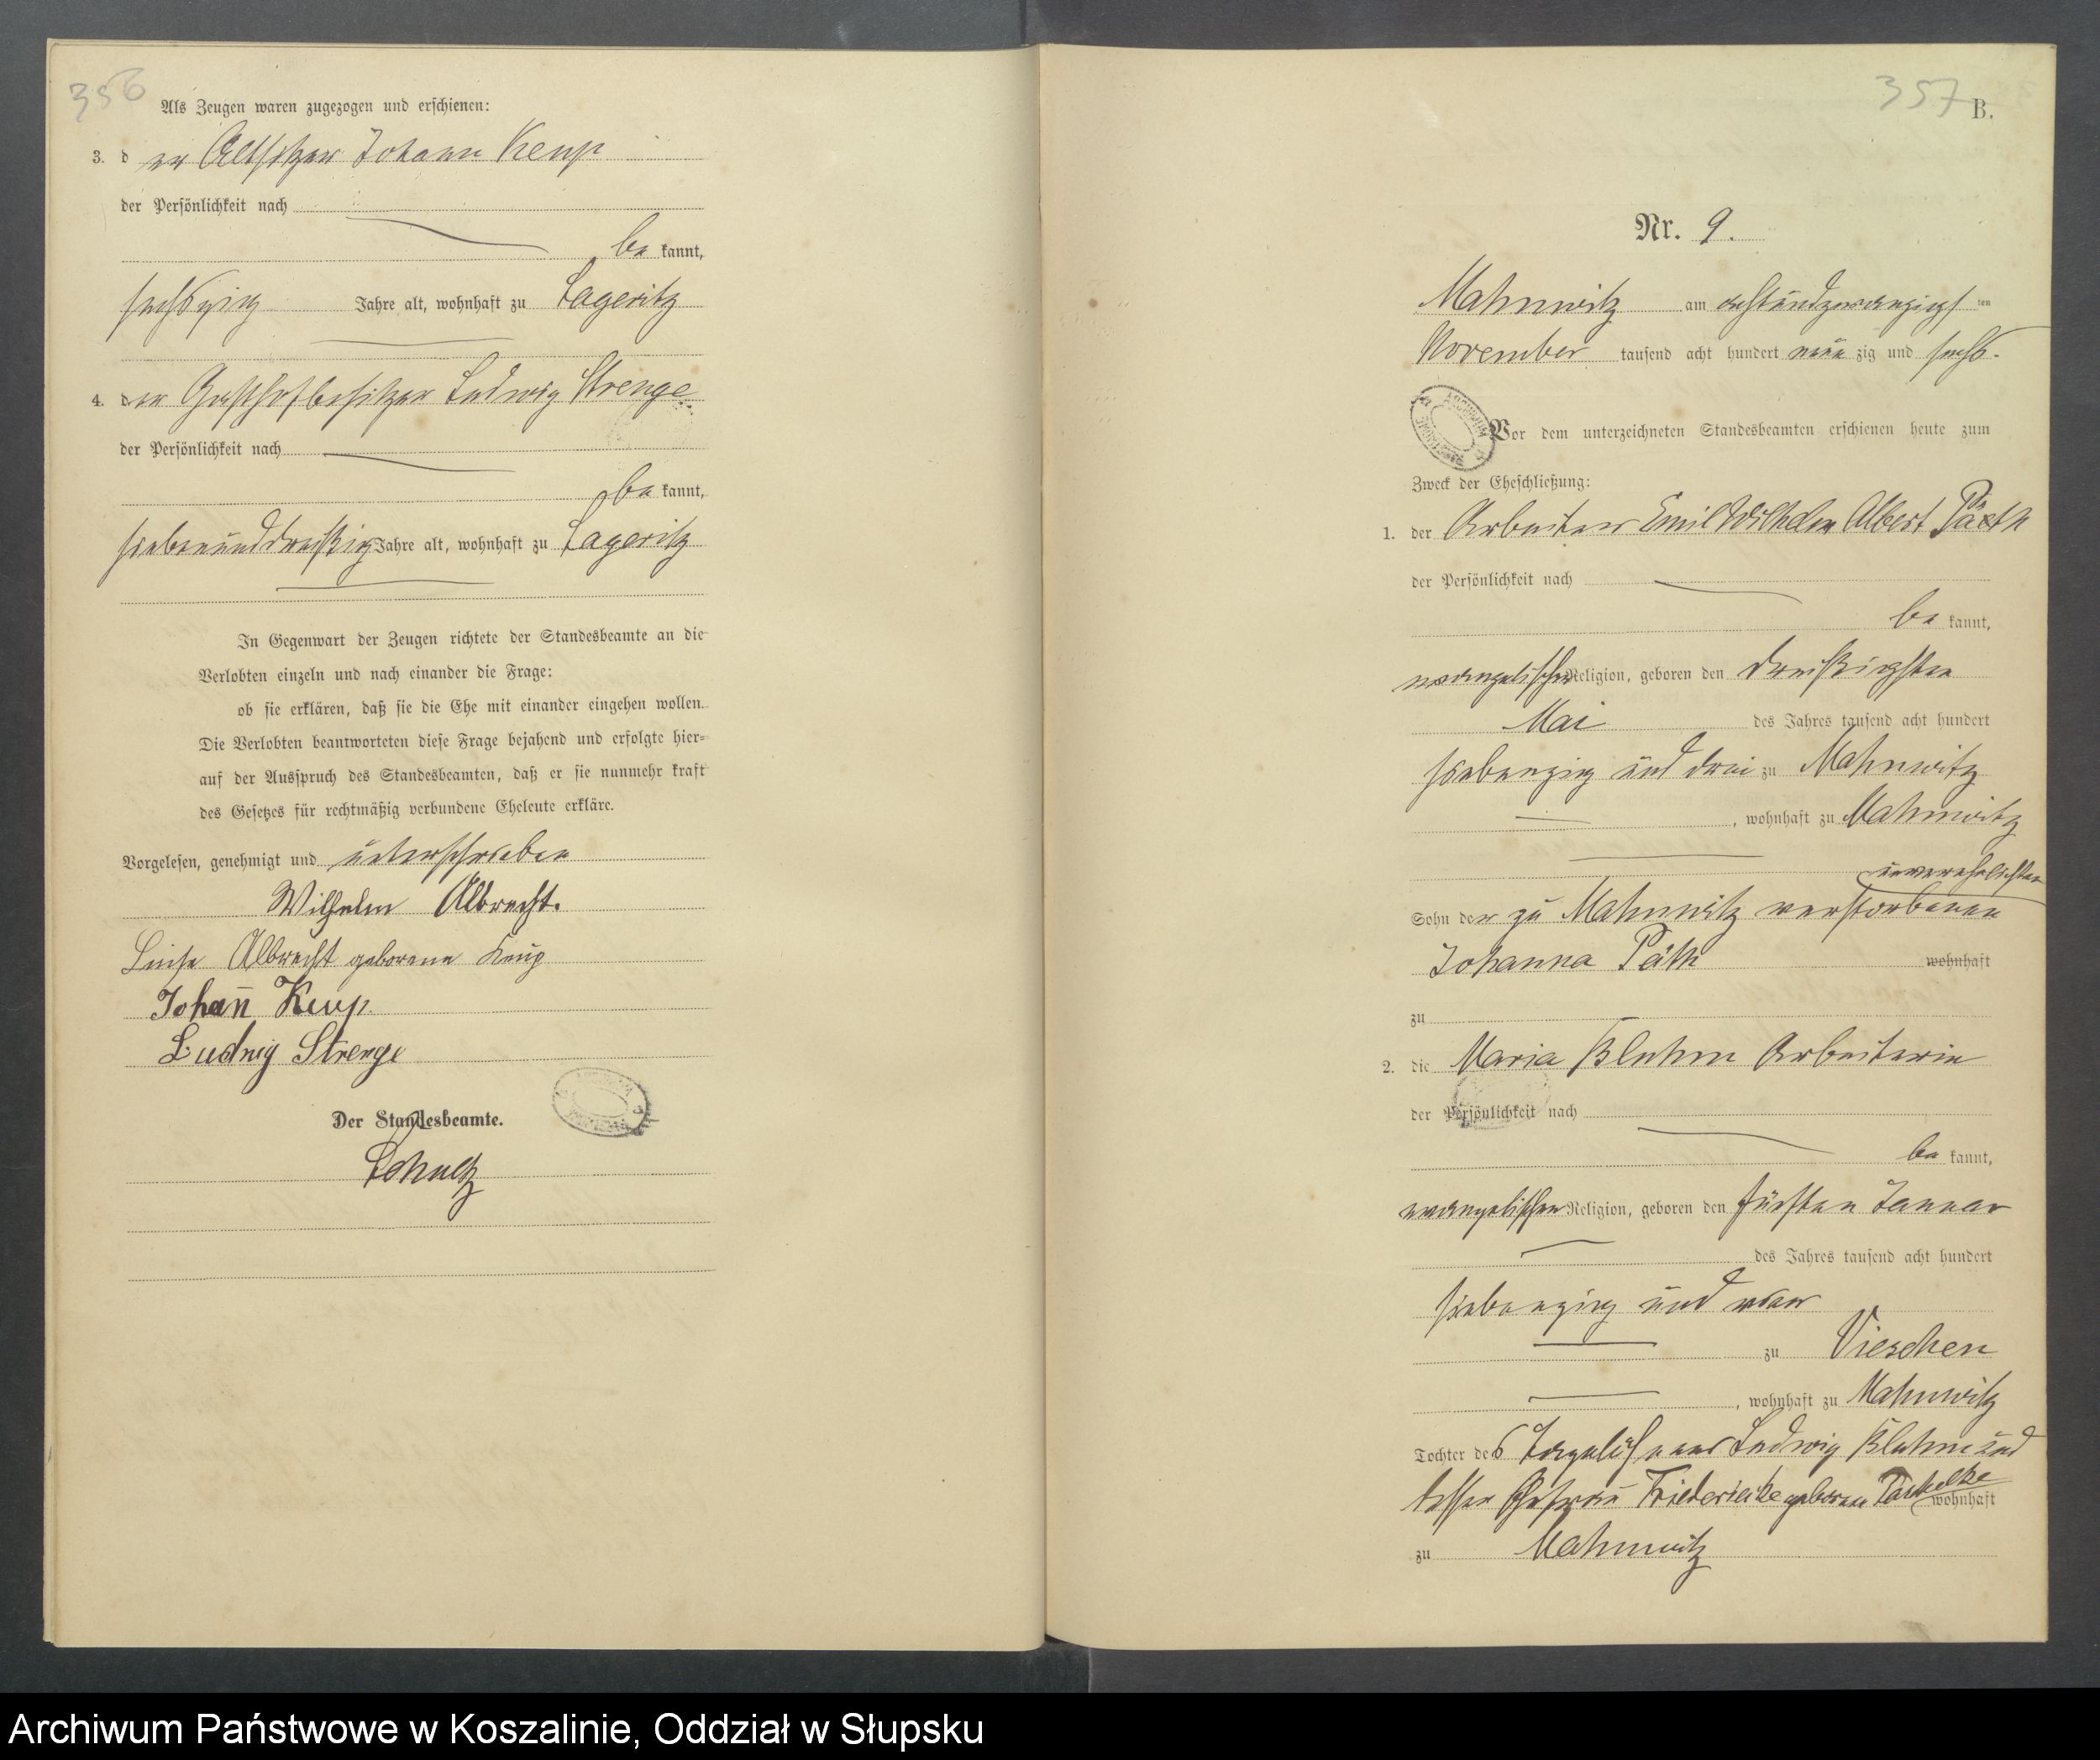 356
Als Zeugen waren zugezogen und erschienen:
3. d er Altsitzer Johann Keup
der Persönlichkeit nach
be kannt,
sechszig Jahre alt, wohnhaft zu Lageritz
4. der Gasthofbesitzer Ludwig Strenge
der Persönlichkeit nach
be kannt,
siebenunddreißig Jahre alt, wohnhaft zu Lageritz
In Gegenwart der Zeugen richtete der Standesbeamte an die
Verlobten einzeln und nach einander die Frage:
ob sie erklären, daß sie die Ehe mit einander eingehen wollen.
Die Verlobten beantworteten diese Frage bejahend und erfolgte hier=
auf der Ausspruch des Standesbeamten, daß er sie nunmehr kraft
des Gesetzes für rechtmäßig verbundene Eheleute erkläre.
Vorgelesen, genehmigt und unterschrieben
Wilhelm Albrecht.
Luise Albrecht geborene Keup
Johann Keup.
Ludwig Strenge
Der Standesbeamte.
Schultz
357 B.
Nr. 9.
Mahnwitz am achtundzwanzigst ten
November tausend acht hundert neun zig und sechs.
Vor dem unterzeichneten Standesbeamten erschienen heute zum
Zweck der Eheschließung:
1. der Arbeiter Emil Wilhelm Albert Päth
der Persönlichkeit nach
be kannt,
evangelischer Religion, geboren den dreißigsten
Mai des Jahres tausend acht hundert
siebenzig und drei zu Mahnwitz
, wohnhaft zu Mahnwitz
unverehelichten
Sohn der zu Mahnwitz verstorbenen
Johanna Päth wohnhaft
zu
2. die Maria Bluhm Arbeiterin
der Persönlichkeit nach
be kannt,
evangelischer Religion, geboren den fünften Januar
des Jahres tausend acht hundert
siebenzig und vier
zu Vieschen
, wohnhaft zu Mahnwitz
Tochter des Tagelöhners Ludwig Bluhm und
dessen Ehefrau Friedericke geborene wohnhaft
zu Mahnwitz
Archiwum Państwowe w Koszalinie, Oddział w Słupsku